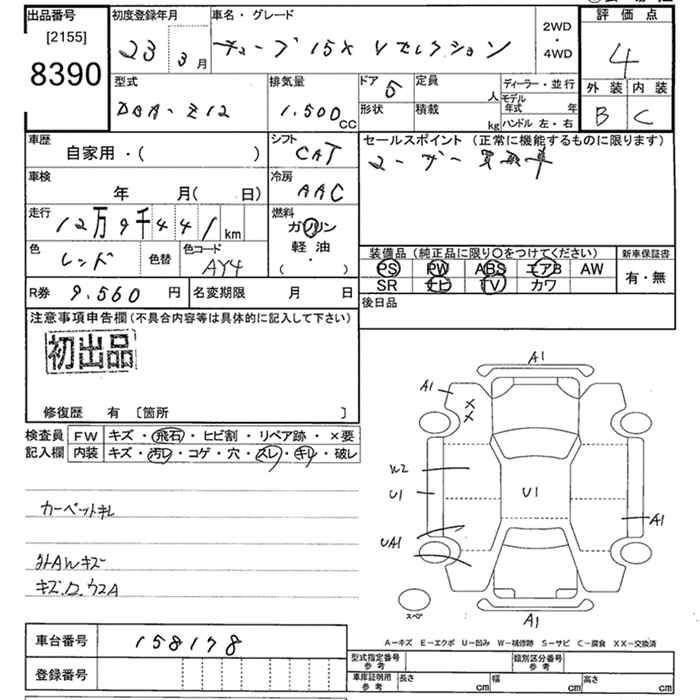 出品番号
[2155]
8390
初度登録年月
23年3月
車名・グレード
キューブ 15X Vセレクション
2WD
・
4WD
評価点
4
外装 内装
B C
型式
DBA-Z12
排気量
1.500cc
ドア 5
形状
定員 人
積載 kg
ディーラー・並行
モデル年式 年
ハンドル 左・右
車歴
自家用・( )
シフト
CAT
車検
年 月( 日)
冷房
AAC
走行
12万9千441km
燃料
ガソリン
軽油
( ・ )
色
レッド
色替
色コード
AY4
R券 9.560円
名変期限 月 日
セールスポイント(正常に機能するものに限ります)
ユーザー買取車
装備品(純正品に限り○をつけてください)
PS PW ABS エアB AW
SR ナビ TV カワ
新車保証書
有・無
後日品
注意事項申告欄(不具合内容等は具体的に記入して下さい)
初出品
修復歴 有 〔箇所 〕
検査員記入欄
FW キズ・飛石・ヒビ割・リペア跡・×要
内装 キズ・汚レ・コゲ・穴・スレ・キレ・破レ
カーペットキレ
外AWキズ
A1
A1
×
×
W2
U1
U1
UA1
A1
A1
スペア
A-キズ E-エクボ U-凹み W-補修跡 S-サビ C-腐食 XX-交換済
車台番号 158178
登録番号
型式指定番号
参考
類別区分番号
参考
車庫証明用
参考
長さ cm
幅 cm
高さ cm